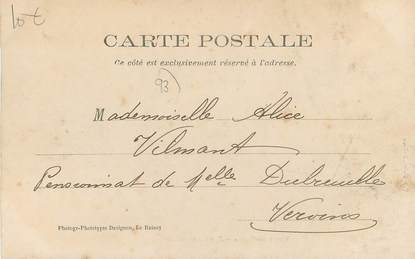 lot
CARTE POSTALE
Ce côté est exclusivement réservé à l'adresse.
93
Mademoiselle Alice
Vilmant
Pensionnat de Melle Dubreuille
Vervins
Photogr-Phototypie Designon, Le Raincy